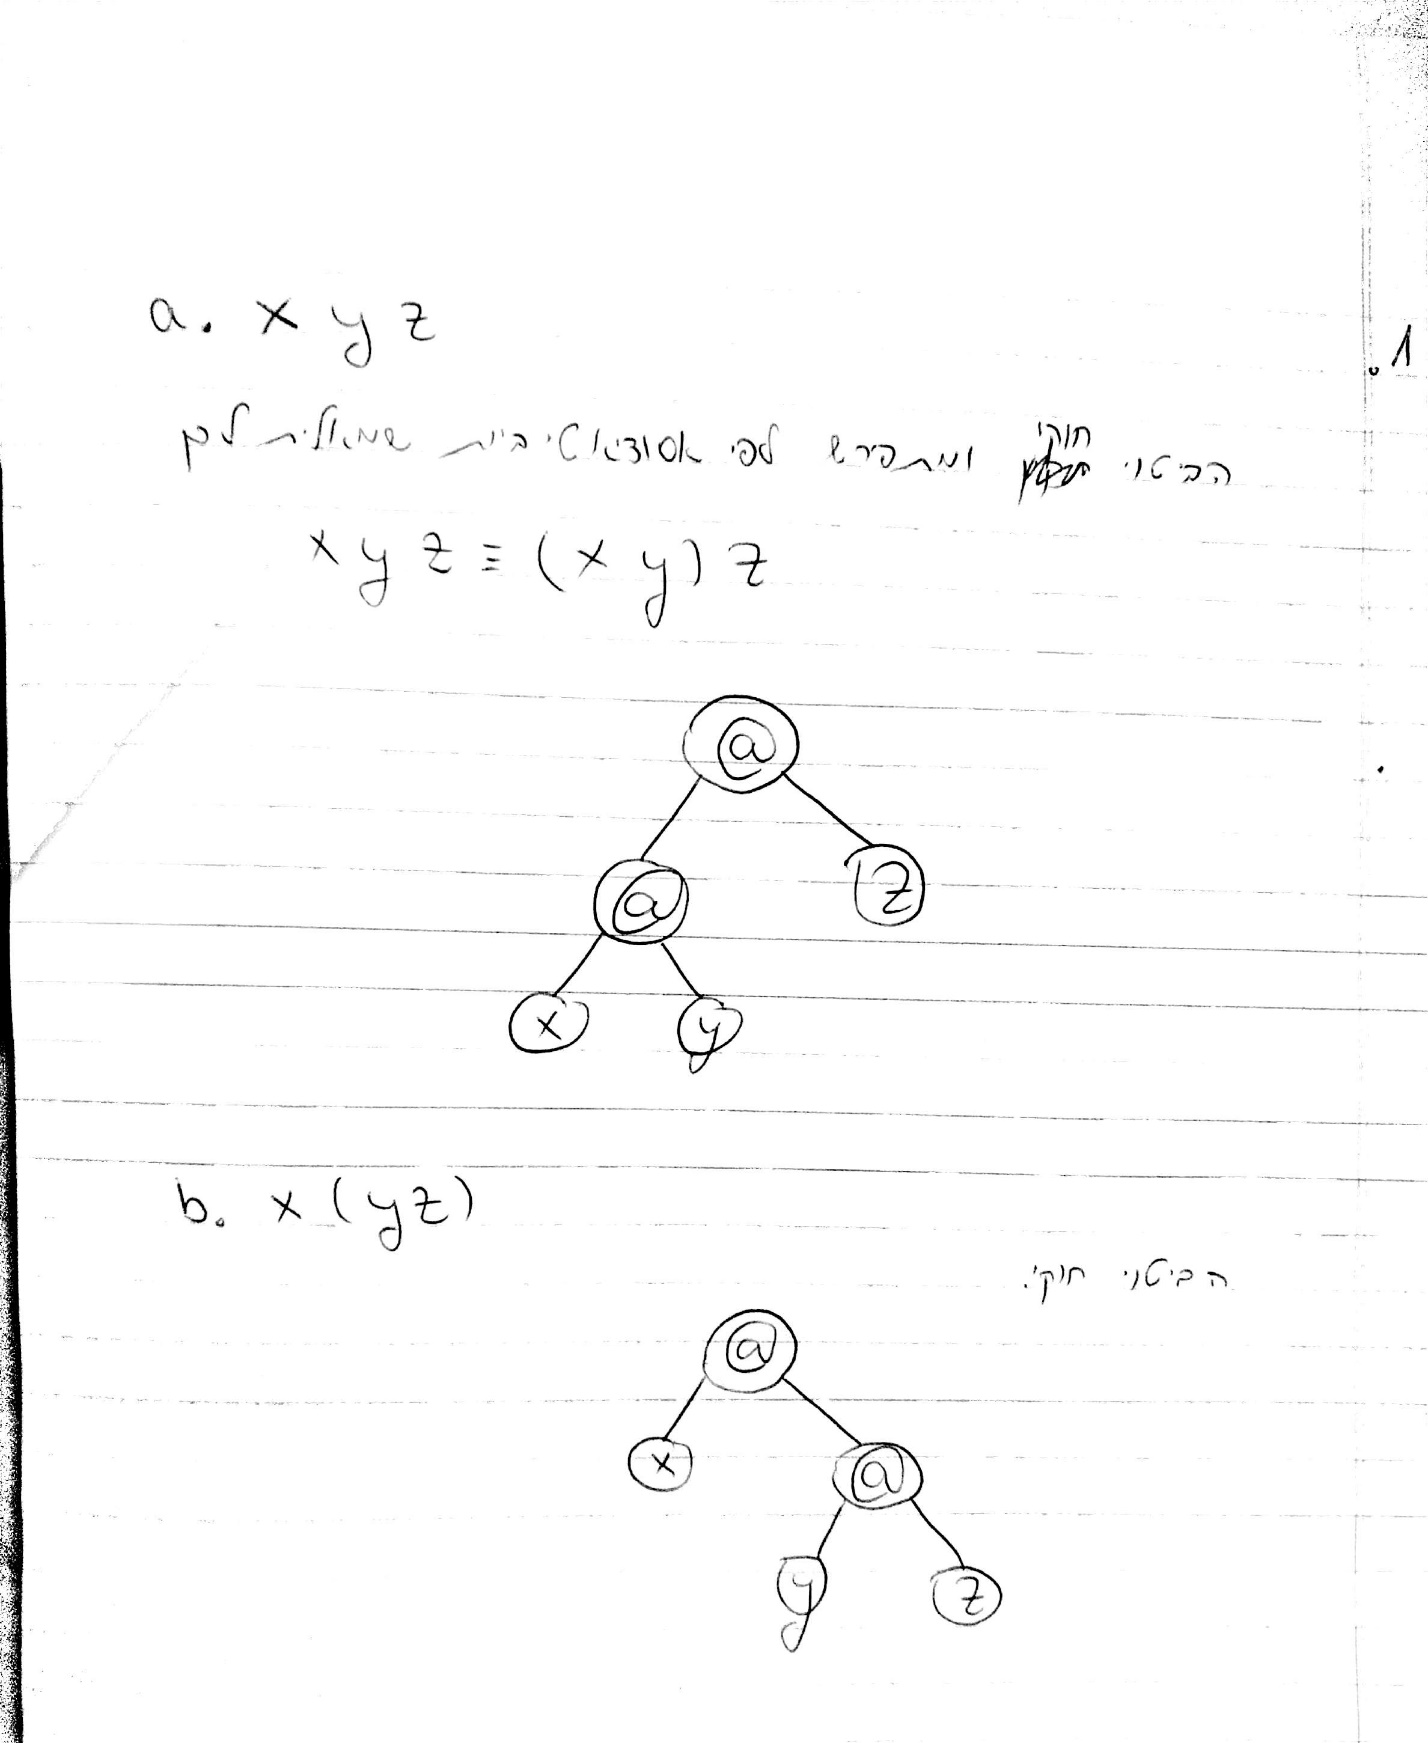 1.
a. x y z
הביטוי חוקי ומתפרש לפי אסוציאטיביות שמאלית לכן
x y z ≡ (x y) z
@
@ z
x y
b. x (y z)
הביטוי חוקי.
@
x @
y z